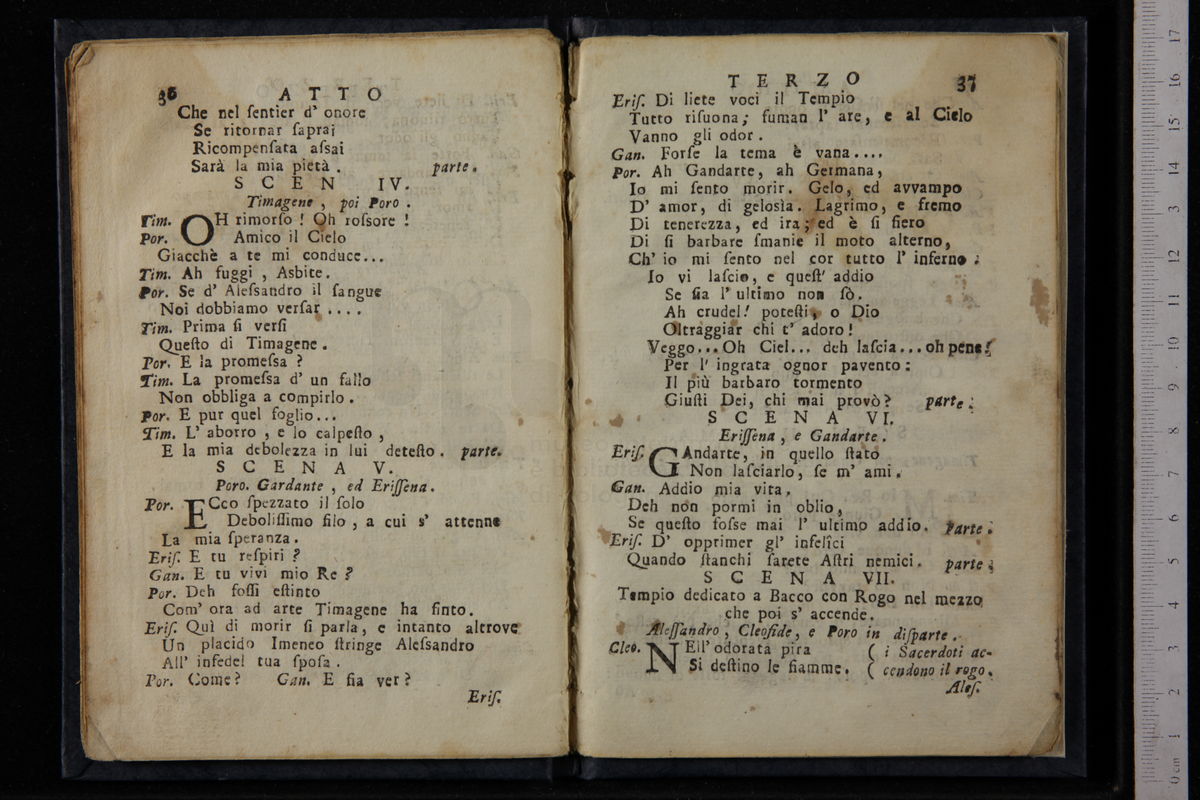 36 ATTO
Che nel ſentier d' onore
Se ritornar ſaprai
Ricompenſata aſsai
Sarà la mia pietà. parte.
SCEN IV.
Timagene, poi Poro.
Tim. OH rimorſo! Oh roſsore!
Por. Amico il Cielo
Giacchè a te mi conduce...
Tim. Ah fuggi, Asbite.
Por. Se d' Aleſsandro il ſangue
Noi dobbiamo verſar....
Tim. Prima ſi verſi
Queſto di Timagene.
Por. E la promeſsa?
Tim. La promeſsa d' un fallo
Non obbliga a compirlo.
Por. E pur quel foglio...
Tim. L' aborro, e lo calpeſto,
E la mia debolezza in lui deteſto. parte.
SCENA V.
Poro. Gardante, ed Eriſſena.
Por. ECco ſpezzato il ſolo
Deboliſſimo filo, a cui s' attenne
La mia ſperanza.
Eriſ. E tu reſpiri?
Gan. E tu vivi mio Re?
Por. Deh foſſi eſtinto
Com' ora ad arte Timagene ha finto.
Eriſ. Quì di morir ſi parla, e intanto altrove
Un placido Imeneo ſtringe Aleſsandro
All' infedel tua ſpoſa.
Por. Come? Gan. E fia ver?
Eriſ.
TERZO 37
Eriſ. Di liete voci il Tempio
Tutto riſuona; fuman l' are, e al Cielo
Vanno gli odor.
Gan. Forſe la tema è vana....
Por. Ah Gandarte, ah Germana,
Io mi ſento morir. Gelo, ed avvampo
D' amor, di gelosìa. Lagrimo, e fremo
Di tenerezza, ed ira; ed è ſi fiero
Di ſi barbare ſmanie il moto alterno,
Ch' io mi ſento nel cor tutto l' inferno.
Io vi laſcio, e queſt' addio
Se ſia l' ultimo non ſò.
Ah crudel! poteſti, o Dio
Oltraggiar chi t' adoro!
Veggo... Oh Ciel... deh laſcia... oh pene!
Per l' ingrata ognor pavento:
Il più barbaro tormento
Giuſti Dei, chi mai provò? parte.
SCENA VI.
Eriſſena, e Gandarte.
Eriſ. GAndarte, in quello ſtato
Non laſciarlo, ſe m' ami.
Gan. Addio mia vita.
Deh non pormi in oblio,
Se queſto foſse mai l' ultimo addio. parte.
Eriſ. D' opprimer gl' infelici
Quando ſtanchi ſarete Aſtri nemici. parte.
SCENA VII.
Tempio dedicato a Bacco con Rogo nel mezzo
che poi s' accende.
Aleſſandro, Cleofide, e Poro in diſparte.
Cleo. NEll' odorata pira ( i Sacerdoti ac-
Si deſtino le fiamme. ( cendono il rogo.
Aleſ.